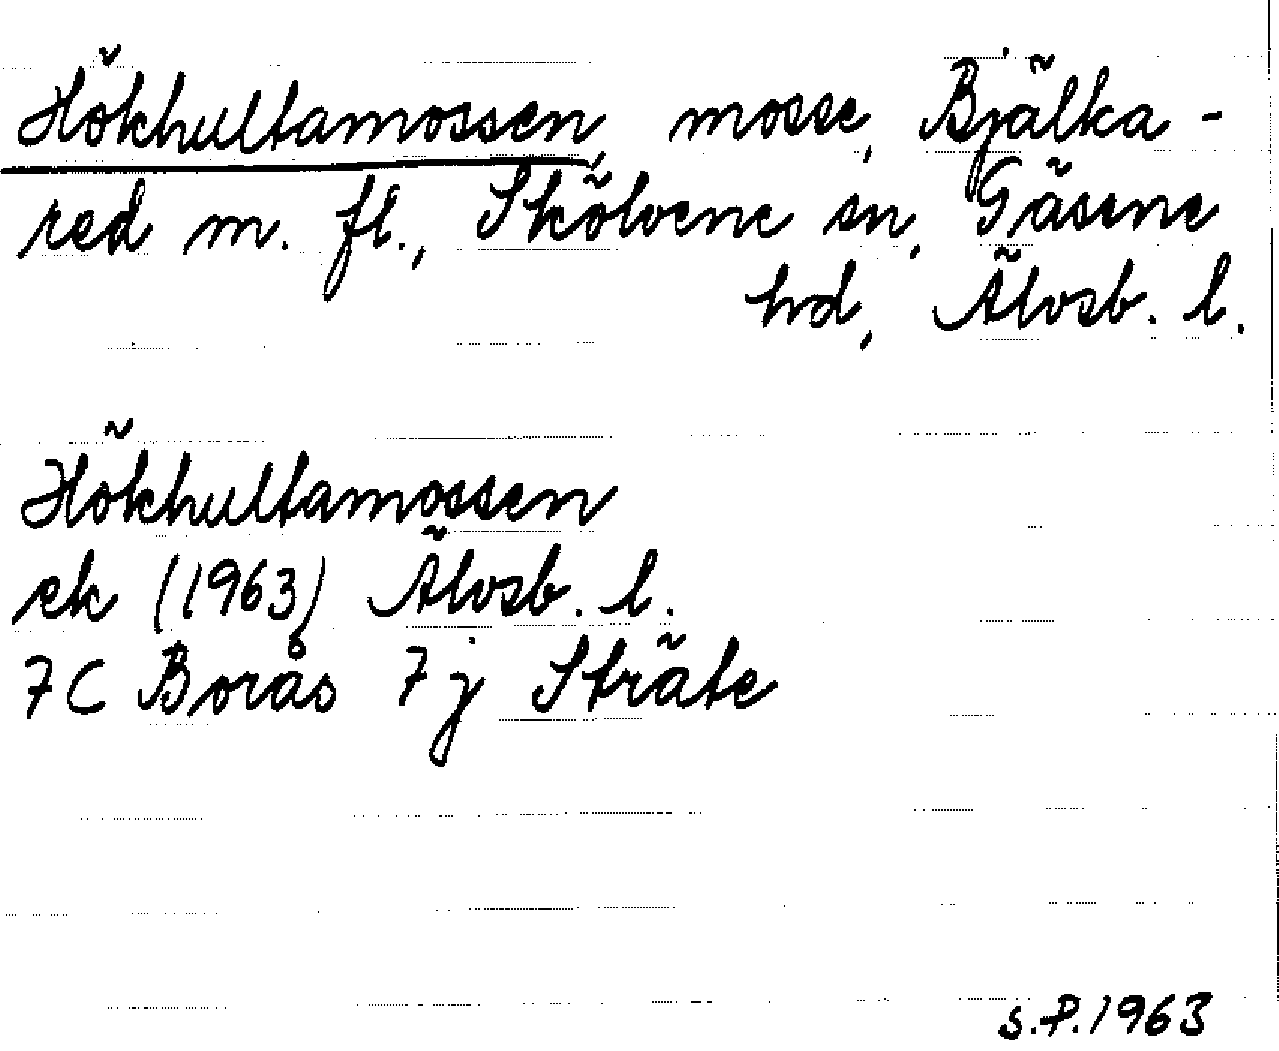 Hökhultamossen, mosse, Bjälka-
red m. fl., Skölvene sn, Gäsene
hd, Älvsb. l.
Hökhultamossen
ek (1963) Älvsb. l.
7C Borås 7j Sträte
S.P. 1963